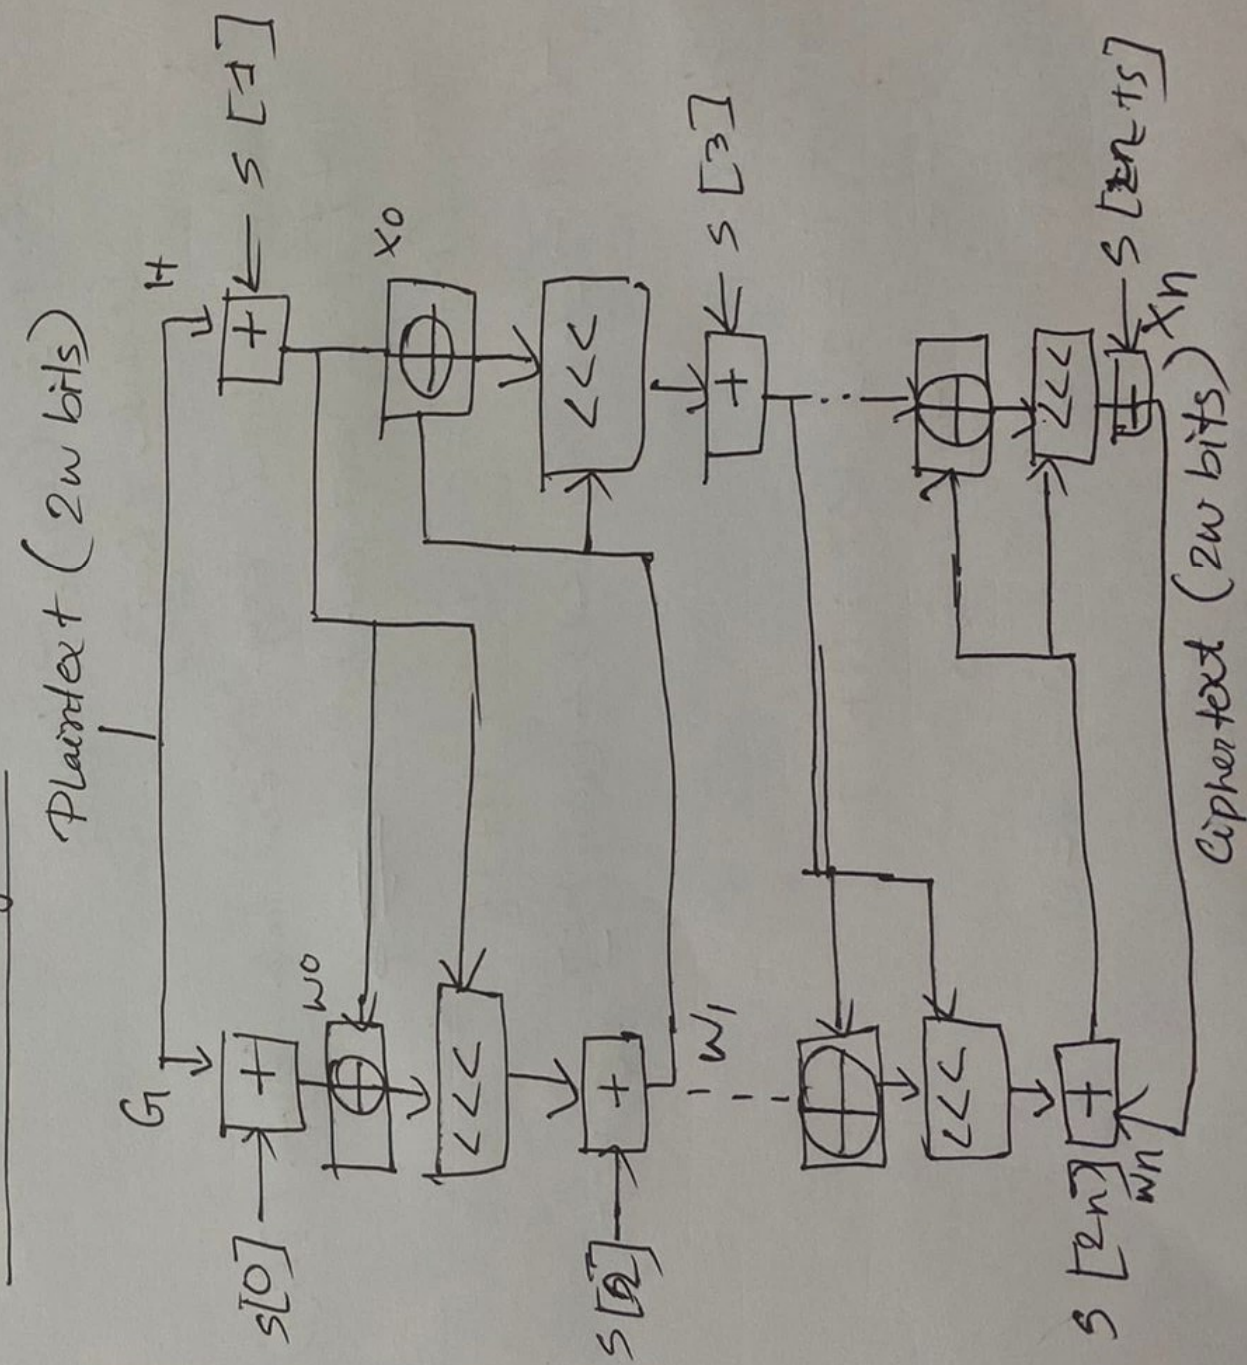 Plaintext (2w bits)
G H
S[0] + + S[1]
W0 X0
⊕ ⊕
<<< <<<
+ + S[3]
W1
⊕ ⊕
<<< <<<
S[2n] + +
Wn Xn
Ciphertext (2w bits)